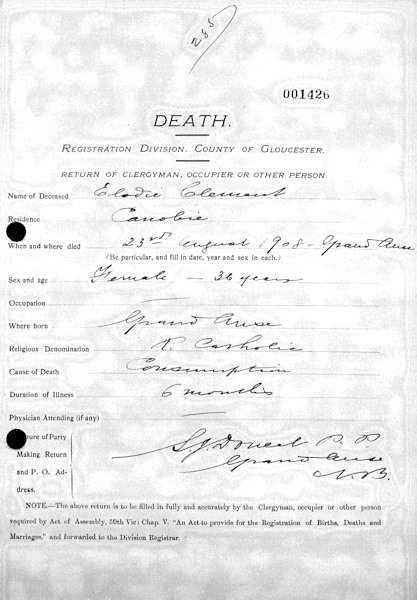 285
001426
DEATH.
REGISTRATION DIVISION. COUNTY OF GLOUCESTER.
RETURN OF CLERGYMAN, OCCUPIER OR OTHER PERSON.
Name of Deceased Elodie Clement
Residence Canobie
When and where died 23rd August 1908 - Grand Anse
(Be particular, and fill in date, year and sex in each.)
Sex and age Female - 36 years
Occupation
Where born Grand Anse
Religious Denomination R. Catholic
Cause of Death Consumption
Duration of Illness 6 months
Physician Attending (if any)
ture of Party S. J. Doucet P. P.
Making Return Grand Anse
and P. O. Ad- N.B.
dress.
NOTE.—The above return is to be filled in fully and accurately by the Clergyman, occupier or other person
required by Act of Assembly, 50th Vic: Chap. V. "An Act to provide for the Registration of Births, Deaths and
Marriages," and forwarded to the Division Registrar.